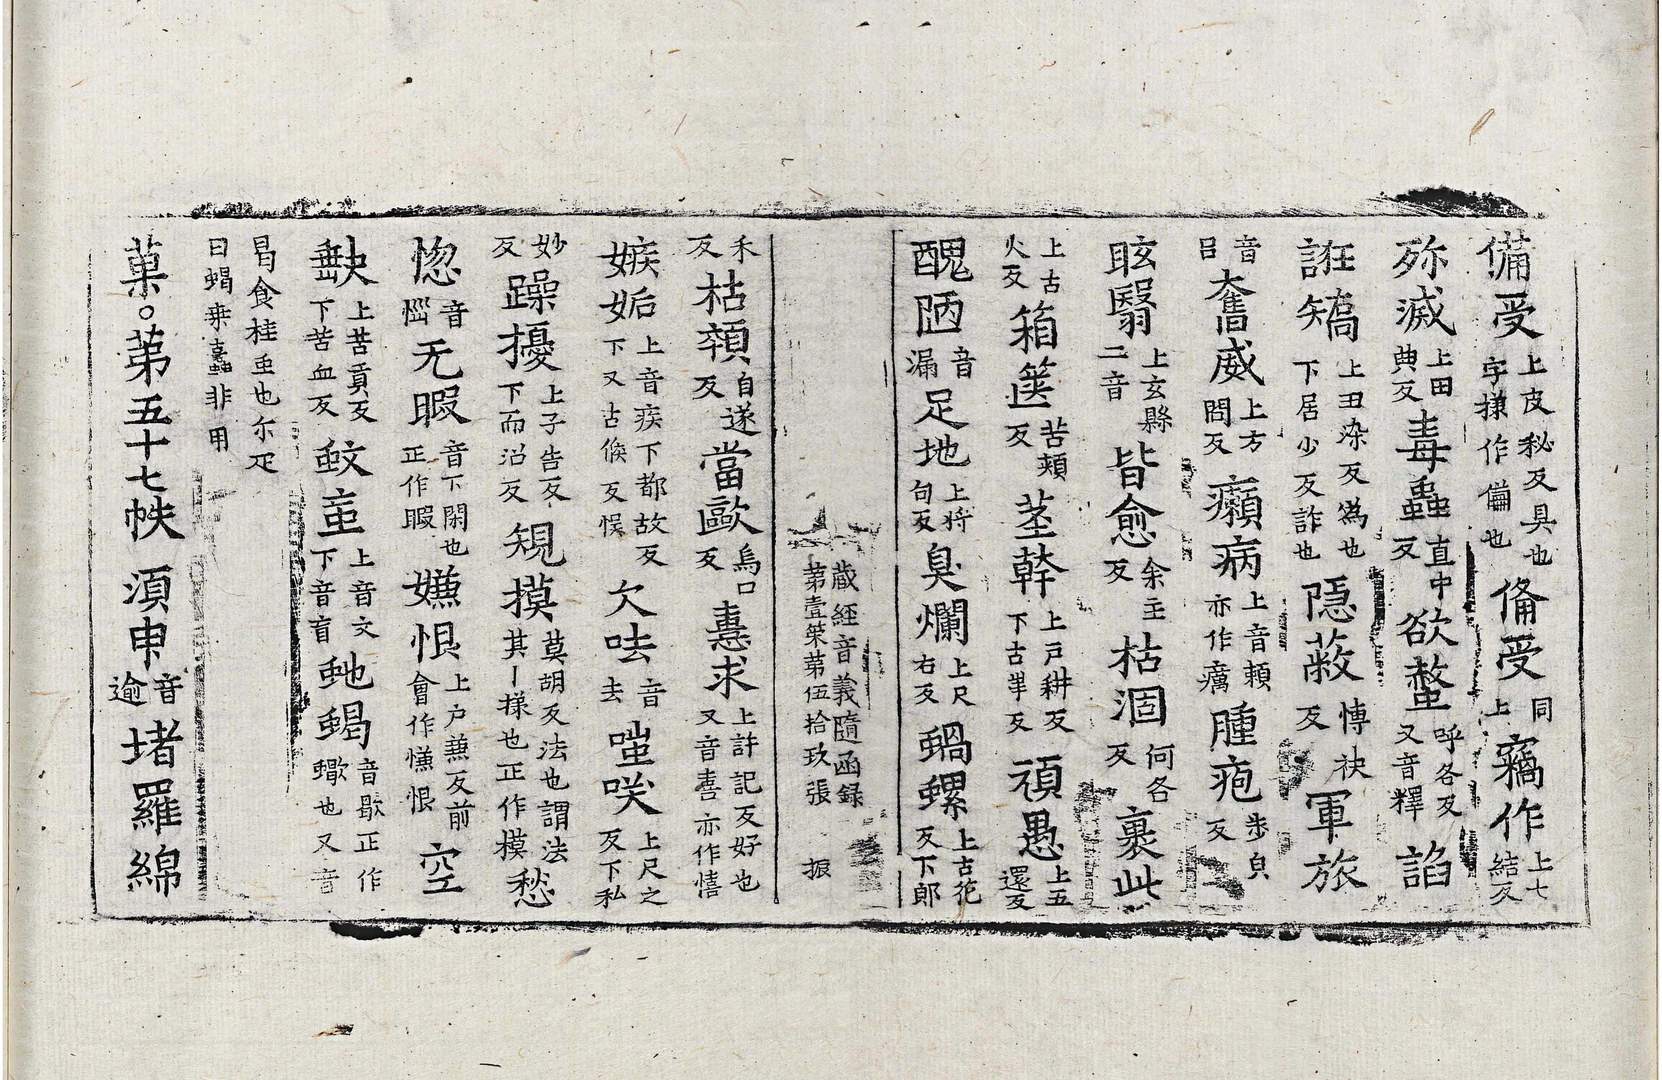 備受上皮秘反具也字㨾作僃也俻受同上竊作上七結反
殄滅上田典反毒蟲直中反欲螫呼各反又音釋諂
誑矯上田染反爲也下居少反詐也隱蔽博袂反軍旅
音呂奮威上方問反癩病上音頼亦作癘腫疱步皃反
眩瞖上玄縣二音皆愈余主反枯涸何各反裹此
上古火反箱篋苦頰反莖幹上戸耕反下古旱反頑愚上五還反
醜陋音漏足地上將句反臭爛上尺右反蝸螺上古花反下郎
藏經音義隨函録第壹筞第伍拾玖張 振
禾反枯顇自遂反當歐烏口反憙求上許記反好也又音喜亦作憘
嫉妬上音疾下都故反下又古候反悮欠呿音去嗤唉上尺之反下私
妙反躁擾上子告反下而沼反規摸莫胡反法也謂法其㨾也正作模愁
惚音㥿无暇音下閑也正作暇嫌恨上户兼反前會作慊恨空
缺上苦貢反下苦血反蚊䖟上音文下音盲虵蝎音歇正作蠍也又音
曷食桂䖝也尓疋曰蝎桒蠧非用
菓。苐五十七帙 湏申音逾堵羅綿